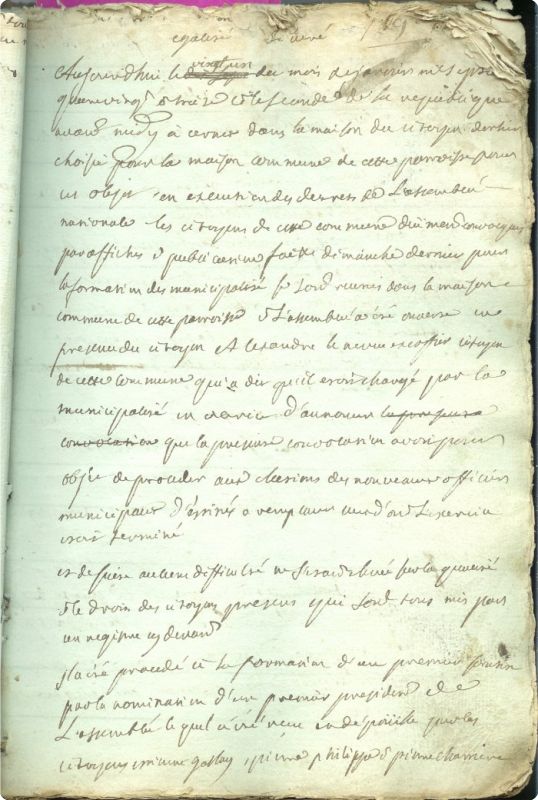 egalité liberté
Aujourdhui le vingt un du mois de janvier mil sept
quatrevingt treize et le second de la republique
avant midy à dans la maison du citoyen
choisie pour la maison commune de cette parroisse pour
cet objet en execution des decrets de L'assemblée
nationale les citoyens de cette commune duement convoqués
par affiches & publication faitte dimanche dernier pour
la formation des municipalité se sont reunis dans la maison
commune de cette parroisse & L'assemblée a été ouverte en
presence du citoyen Alexandre citoyen
de cette commune qui a dit qu'il etoit chargé par la
municipalité en d'annoncer la presente
convocation que la presente convocation avoit pour
objet de proceder aux elections des nouveaux officiers
municipaux d'éstinés a remplacer ceux dont L'exercice
etoit terminé
et de suite aucune difficulté ne s'etant elevée sur la qualité
& le droit des citoyens presens qui sont tous mis sur
un registre cy devant
il a été procedé à la formation d'un premier scrutin
par la nomination d'un premier president de
L'assemblé le quel a été reçu et depouillé par les
citoyens etienne , pierre philippe & pierre